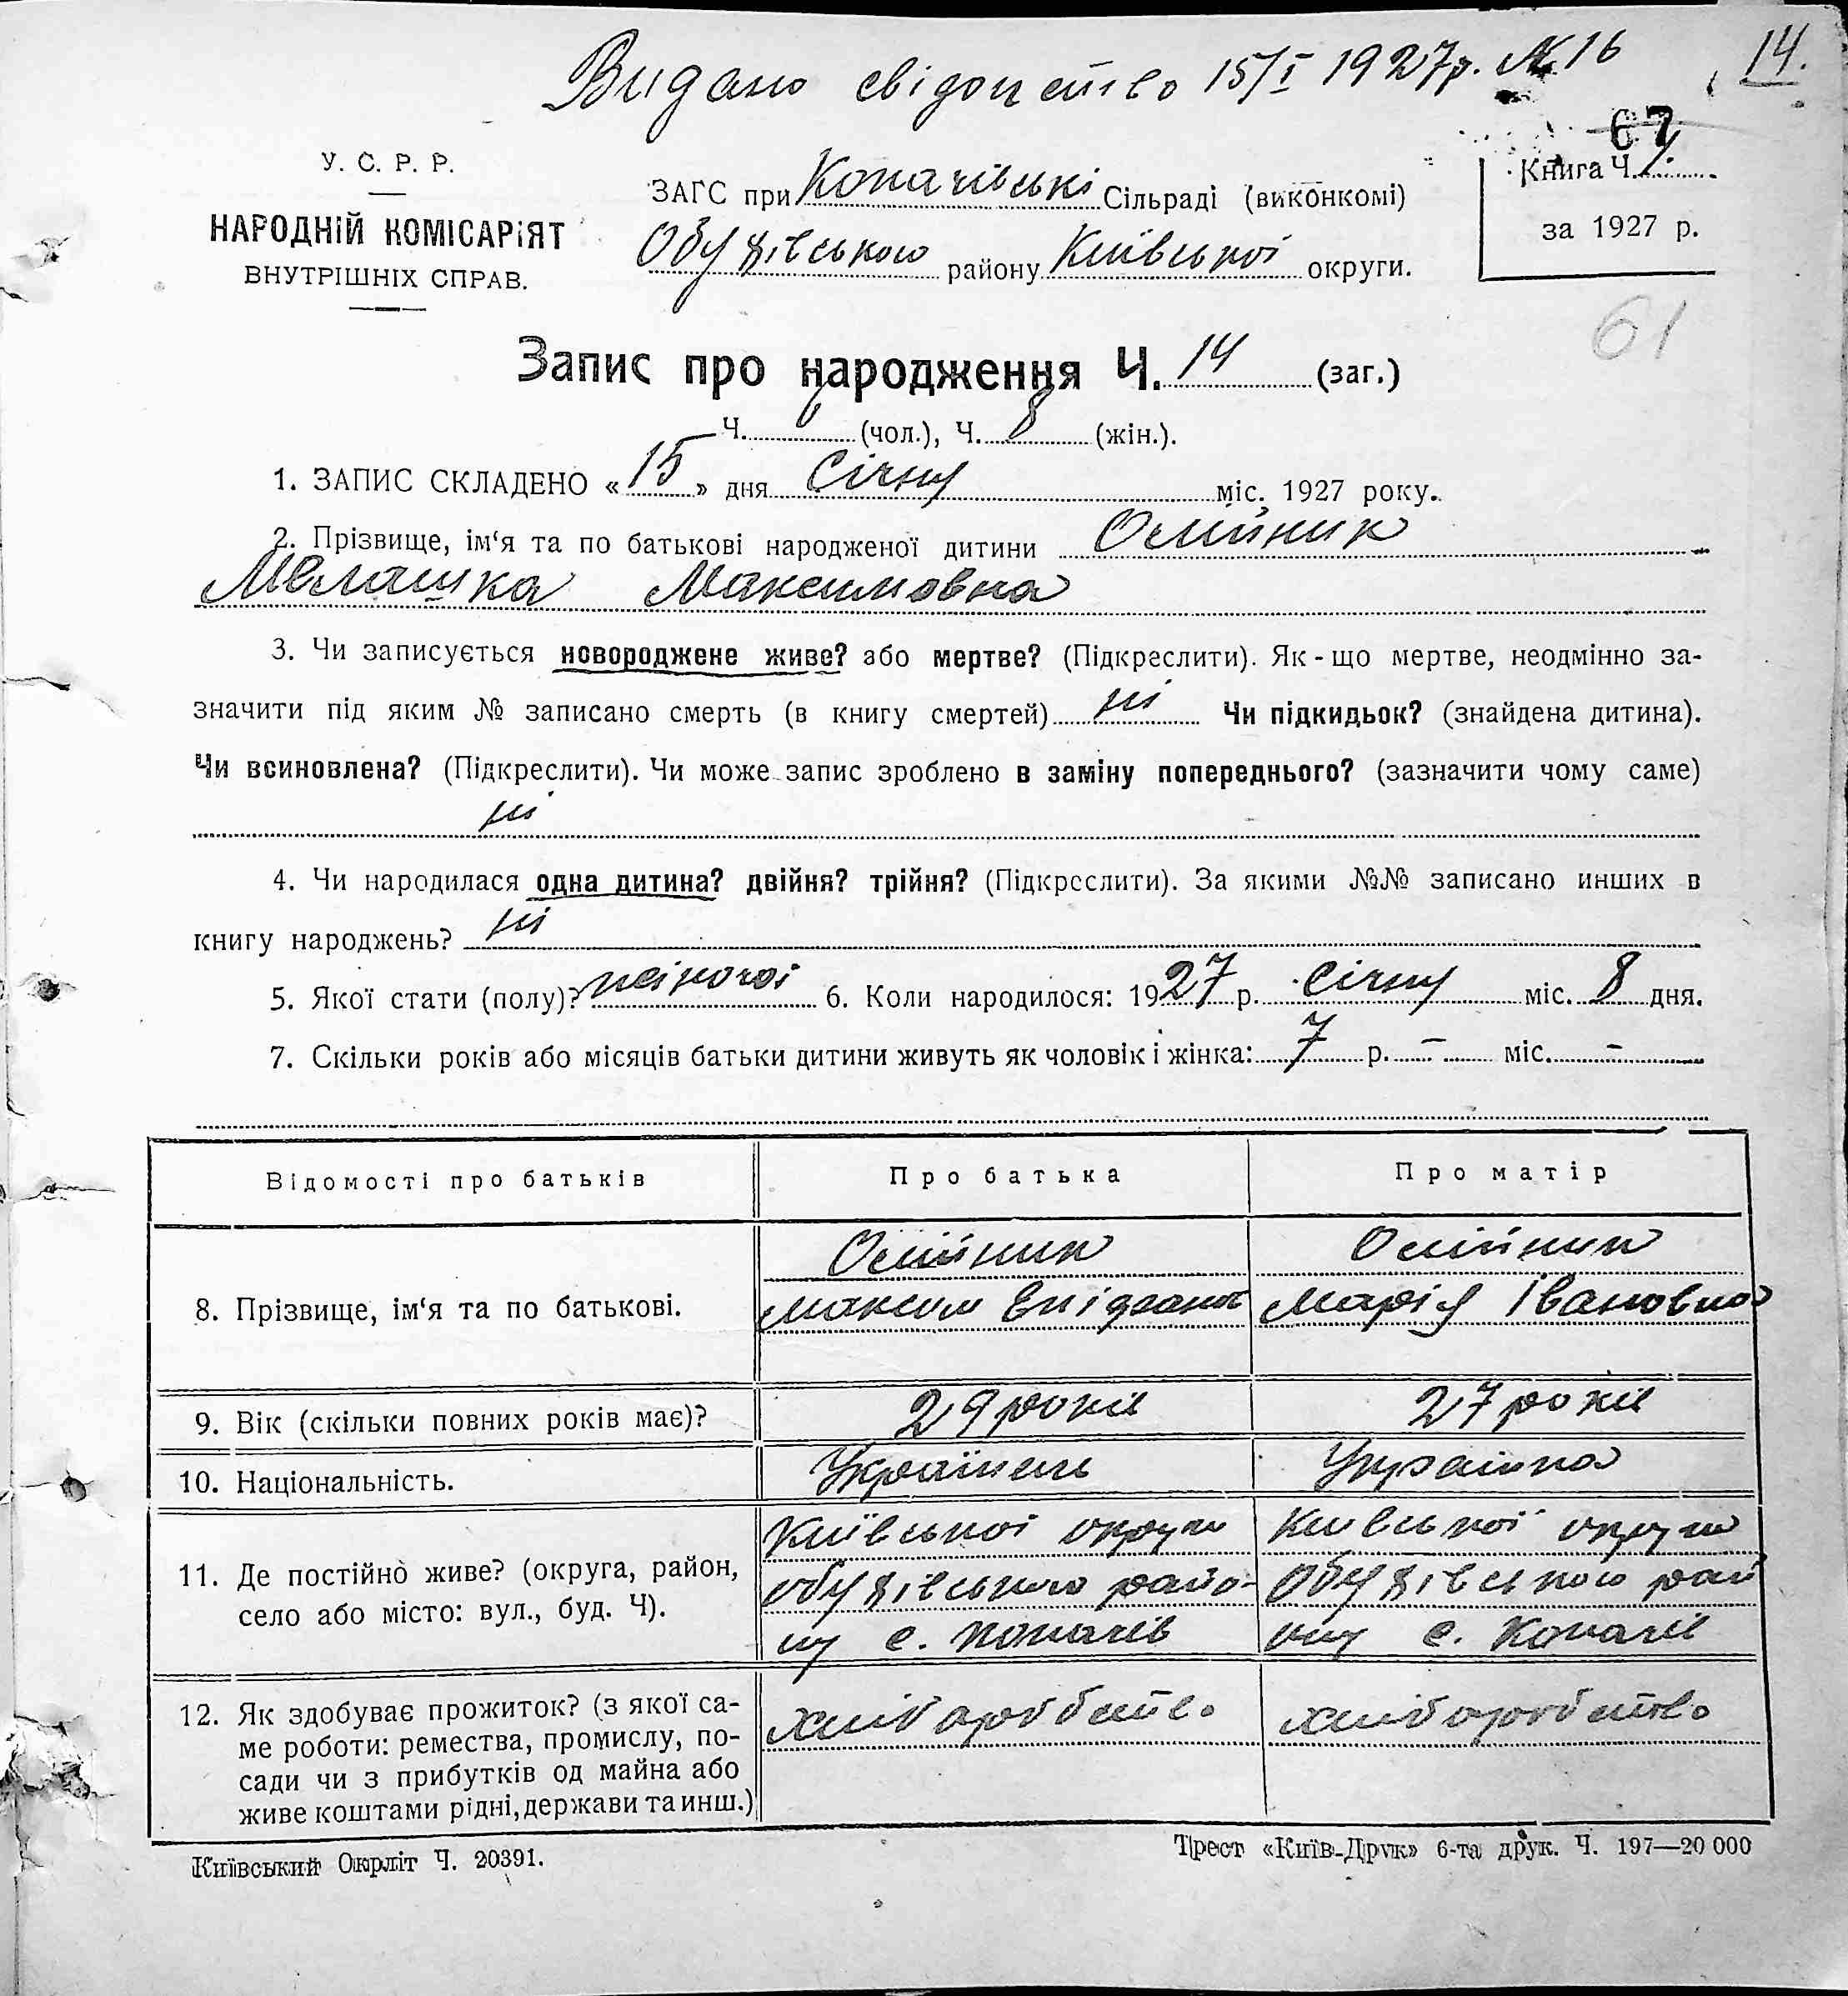 Видано свідоцтво 15/I 1927р. № 16
14.
67
У. С. Р. Р.
НАРОДНІЙ КОМІСАРІЯТ
ВНУТРІШНІХ СПРАВ.
ЗАГС при Копачівські Сільраді (виконкомі)
Обухівського району Київської округи.
Книга Ч. 1.
за 1927 р.
61
Запис про народження Ч. 14 (заг.)
Ч. (чол.), Ч. 8 (жін.).
1. ЗАПИС СКЛАДЕНО « 15 » дня Січня міс. 1927 року.
2. Прізвище, ім‘я та по батькові народженої дитини Олійник
Мелашка Максимовна
3. Чи записується новороджене живе? або мертве? (Підкреслити). Як-що мертве, неодмінно за-
значити під яким № записано смерть (в книгу смертей) ні Чи підкидьок? (знайдена дитина).
Чи всиновлена? (Підкреслити). Чи може запис зроблено в заміну попереднього? (зазначити чому саме)
ні
4. Чи народилася одна дитина? двійня? трійня? (Підкреслити). За якими №№ записано инших в
книгу народжень? ні
5. Якої стати (полу)? жіночої 6. Коли народилося: 1927 р. Січня міс. 8 дня.
7. Скільки років або місяців батьки дитини живуть як чоловік і жінка: 7 р. - міс. -
Відомості про батьків Про батька Про матір
8. Прізвище, ім‘я та по батькові.
Олійник
Максим
Олійник
Марія Івановна
9. Вік (скільки повних років має)? 29 років 27 років
10. Національність. Українець Українка
11. Де постійно живе? (округа, район,
село або місто: вул., буд. Ч).
Київської округи
Обухівського райо-
ну с. Копачів
Київської округи
Обухівського рай
ону с. Копачів
12. Як здобуває прожиток? (з якої са-
ме роботи: ремества, промислу, по-
сади чи з прибутків од майна або
живе коштами рідні, держави та инш.)
хліборобство
хліборобство
Київський Окрліт Ч. 20391.
Трест «Київ-Друк» 6-та друк. Ч. 197—20 000